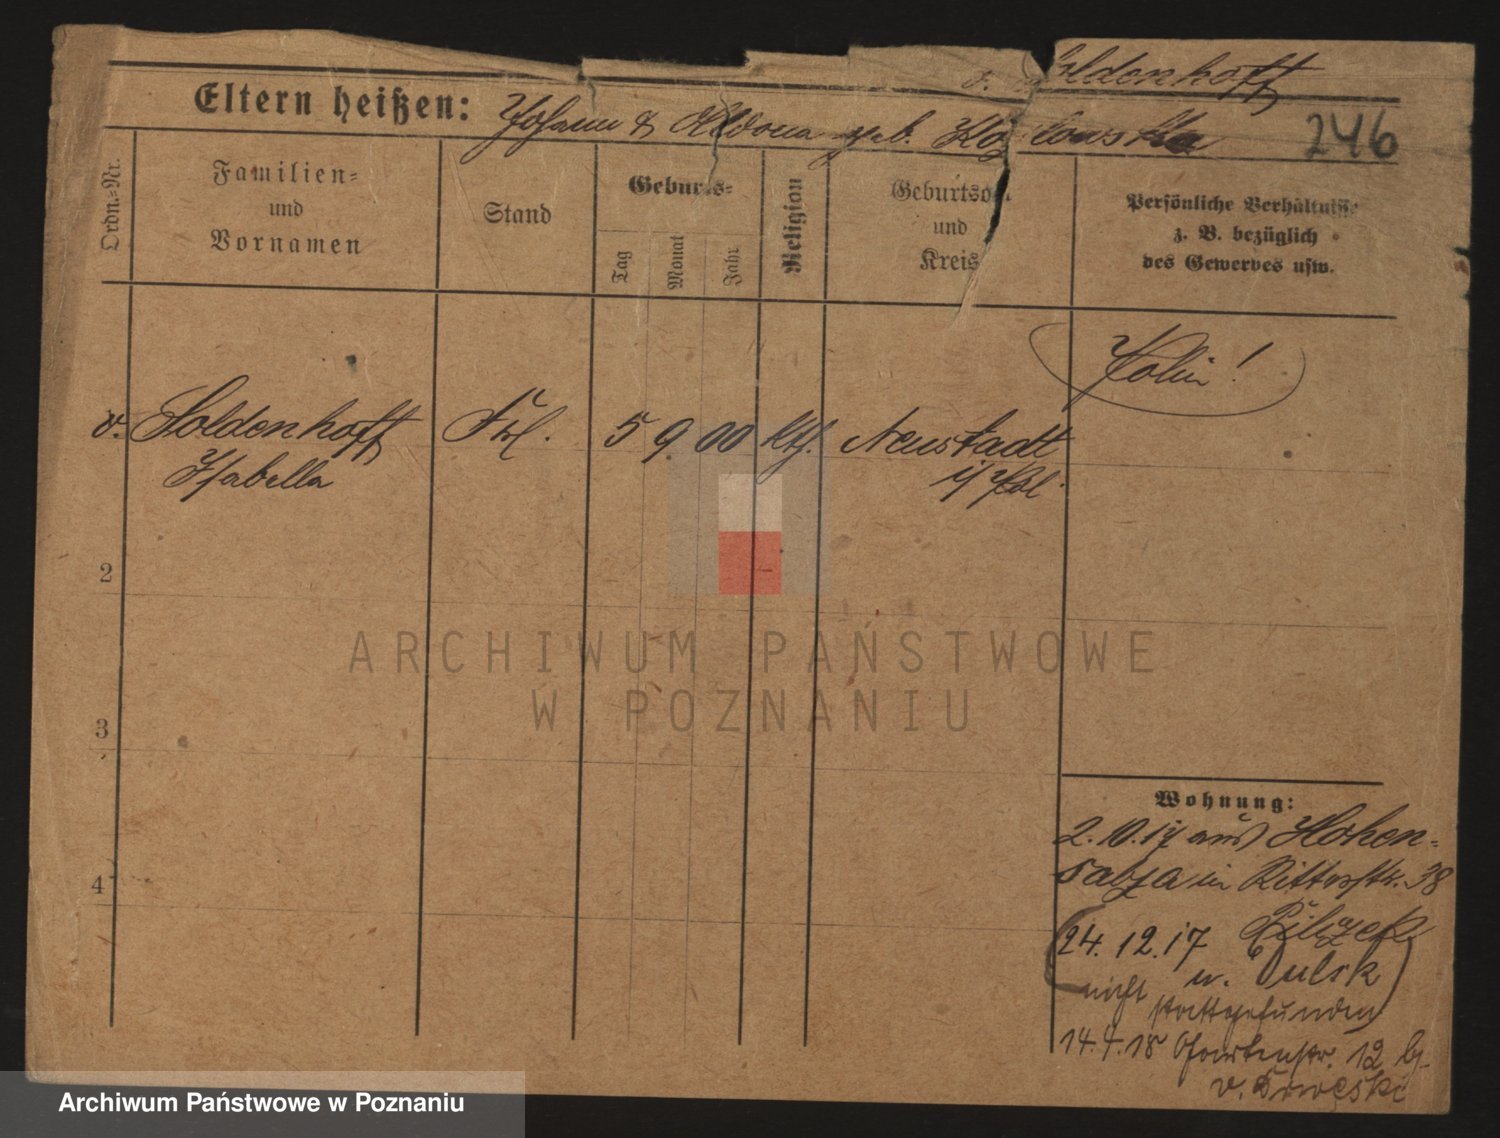 v. Soldenhoff
Eltern heißen: Johann & Aldona geb. Kozlowska
246
Ordn.-Nr.
Familien-
und
Vornamen
Stand
Geburts-
Tag
Monat
Jahr
Religion
Geburtsort
und
Kreis
Persönliche Verhältnisse
z. B. bezüglich
des Gewerbes usw.
Polin!
v. Soldenhoff Frl. 5 9 00 kth. Neustadt
Isabella
2
3
4
Wohnung:
2.10.17 aus Hohen-
salza in Ritterstr. 38
24.12.17
u.
nicht stattgefunden
14.4.18 Gartenstr. 12 b.
v.
ARCHIWUM PAŃSTWOWE
W POZNANIU
Archiwum Państwowe w Poznaniu